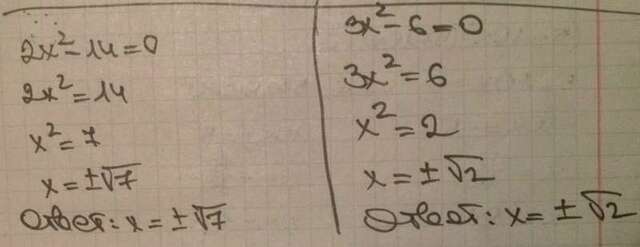 2x² - 14 = 0
2x² = 14
x² = 7
x = ±√7
Ответ: x = ±√7
3x² - 6 = 0
3x² = 6
x² = 2
x = ±√2
Ответ: x = ±√2